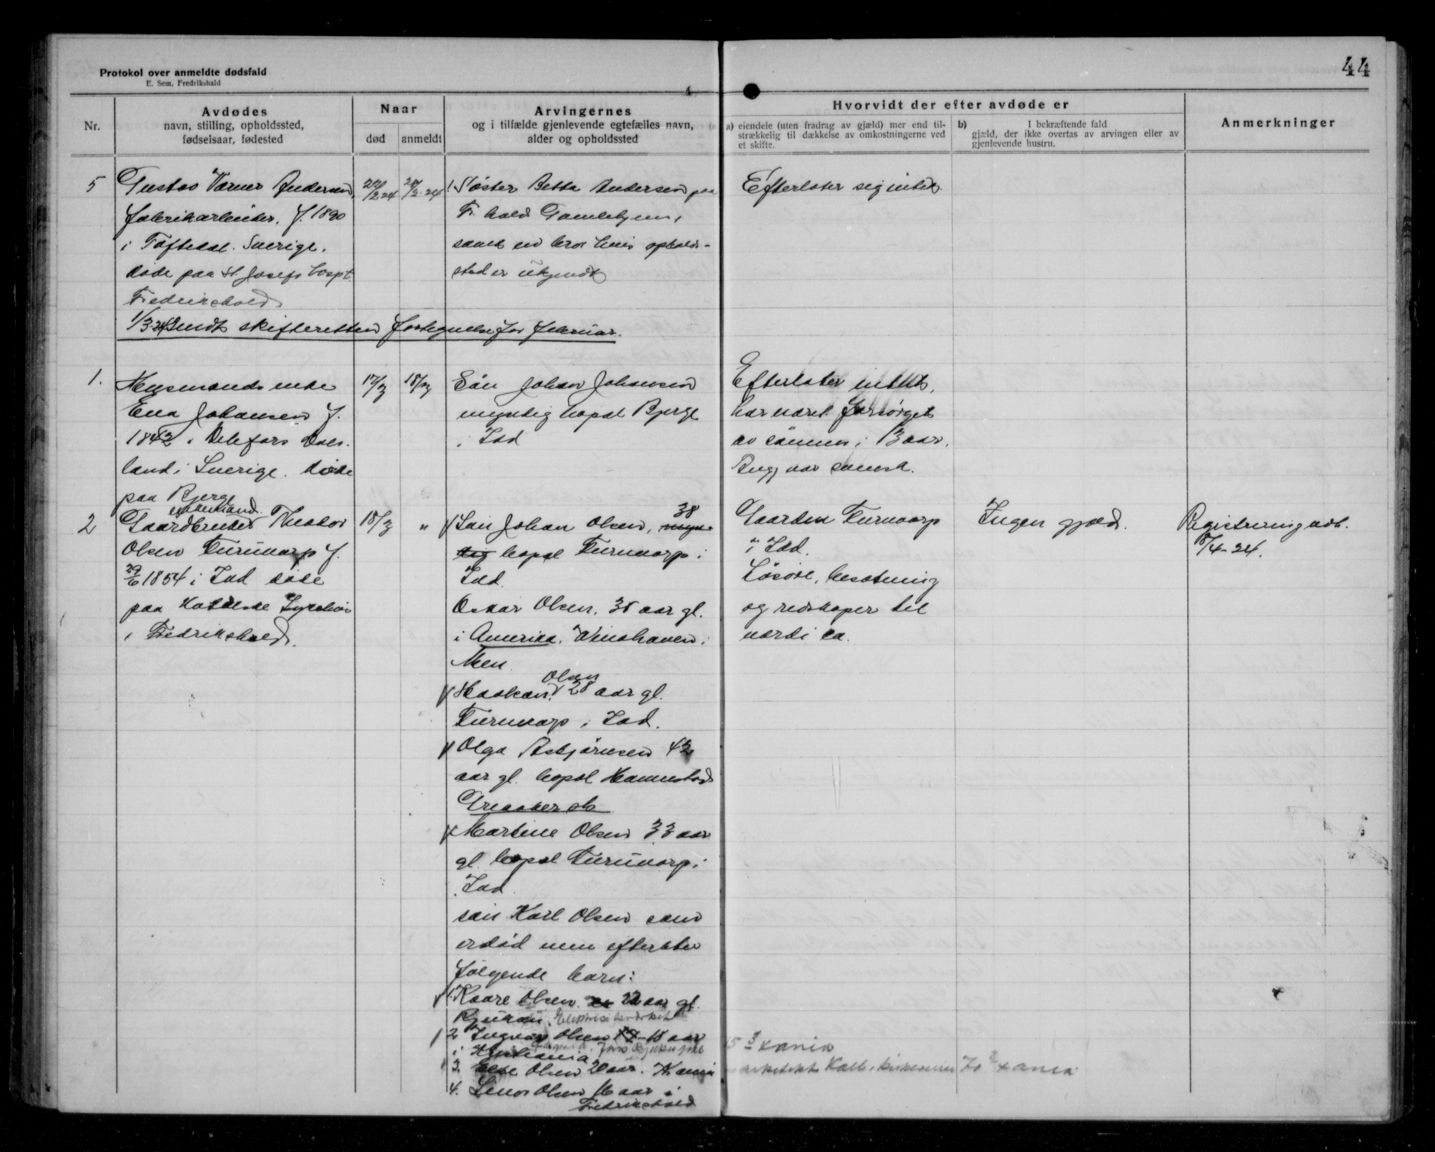 44
Protokol over anmeldte dødsfald
E. Sem, Fredrikshald
Nr.
Avdødes
navn, stilling, opholdssted,
fødselsaar, fødested
Naar
død
anmeldt
Arvingernes
og i tilfælde gjenlevende egtefælles navn,
alder og opholdssted
Hvorvidt der efter avdøde er
a) eiendele (uten fradrag av gjæld) mer end til-
strækkelig til dækkelse av omkostningerne ved
et skifte.
b) I bekræftende fald
gjæld, der ikke overtas av arvingen eller av
gjenlevende hustru.
Anmerkninger
5
Gustav Verner Andersen
fabrikarbeider, f. 1890
i Töftedal. Sverige.
døde paa St Josefs hospt.
Fredrikshald
Søster Betta Andersen paa
Fr.hald Gamlehjem,
samt en bror hvis opholds-
sted er ukjendt
Efterlater sig intet
1/3 24 Sendt skifteretten fortegnelse for februar.
1.
Husmands enke
Eva Johansen f.
1843 i Dals-
land i Sverige. døde
paa Bjerge
17/3
18/3
Søn Johan Johansen
myndig bopæl Bjerge
i Idd
Efterlater intet,
har været forsørget
av sønnen i 13 aar.
2
enkemand
Gaardbruker Theodor
Olsen Furuvarp f.
29/6 1854 i Idd døde
paa Sykehus
i Fredrikshald.
18/3
"
Søn Johan Olsen, 38
bopæl Furuvarp i
Idd
Oskar Olsen. 35 aar gl.
i Amerika.
Men.
Haakan Olsen 28 aar gl.
Furuvarp i Idd.
Olga Asbjørnsen 42
aar gl. bopæl Hannestad
Greaaker st.
Martine Olsen 33 aar
gl. bopæl Furuvarp i
Idd.
søn Karl Olsen som
er død men efterlater
følgende barn:
1 Kaare Olsen 22 aar gl.
Rjukan.
2 Ingvar Olsen 18 aar
i Kristiania
3. Olsen 20 aar. Kr.ania
4. Olsen 16 aar i
Fredrikshald
Gaarden Furuvarp
i Idd.
Løsøre, besætning
og redskaper til
værdi ca.
Ingen gjæld.
Registrering adb.
5/4-24.